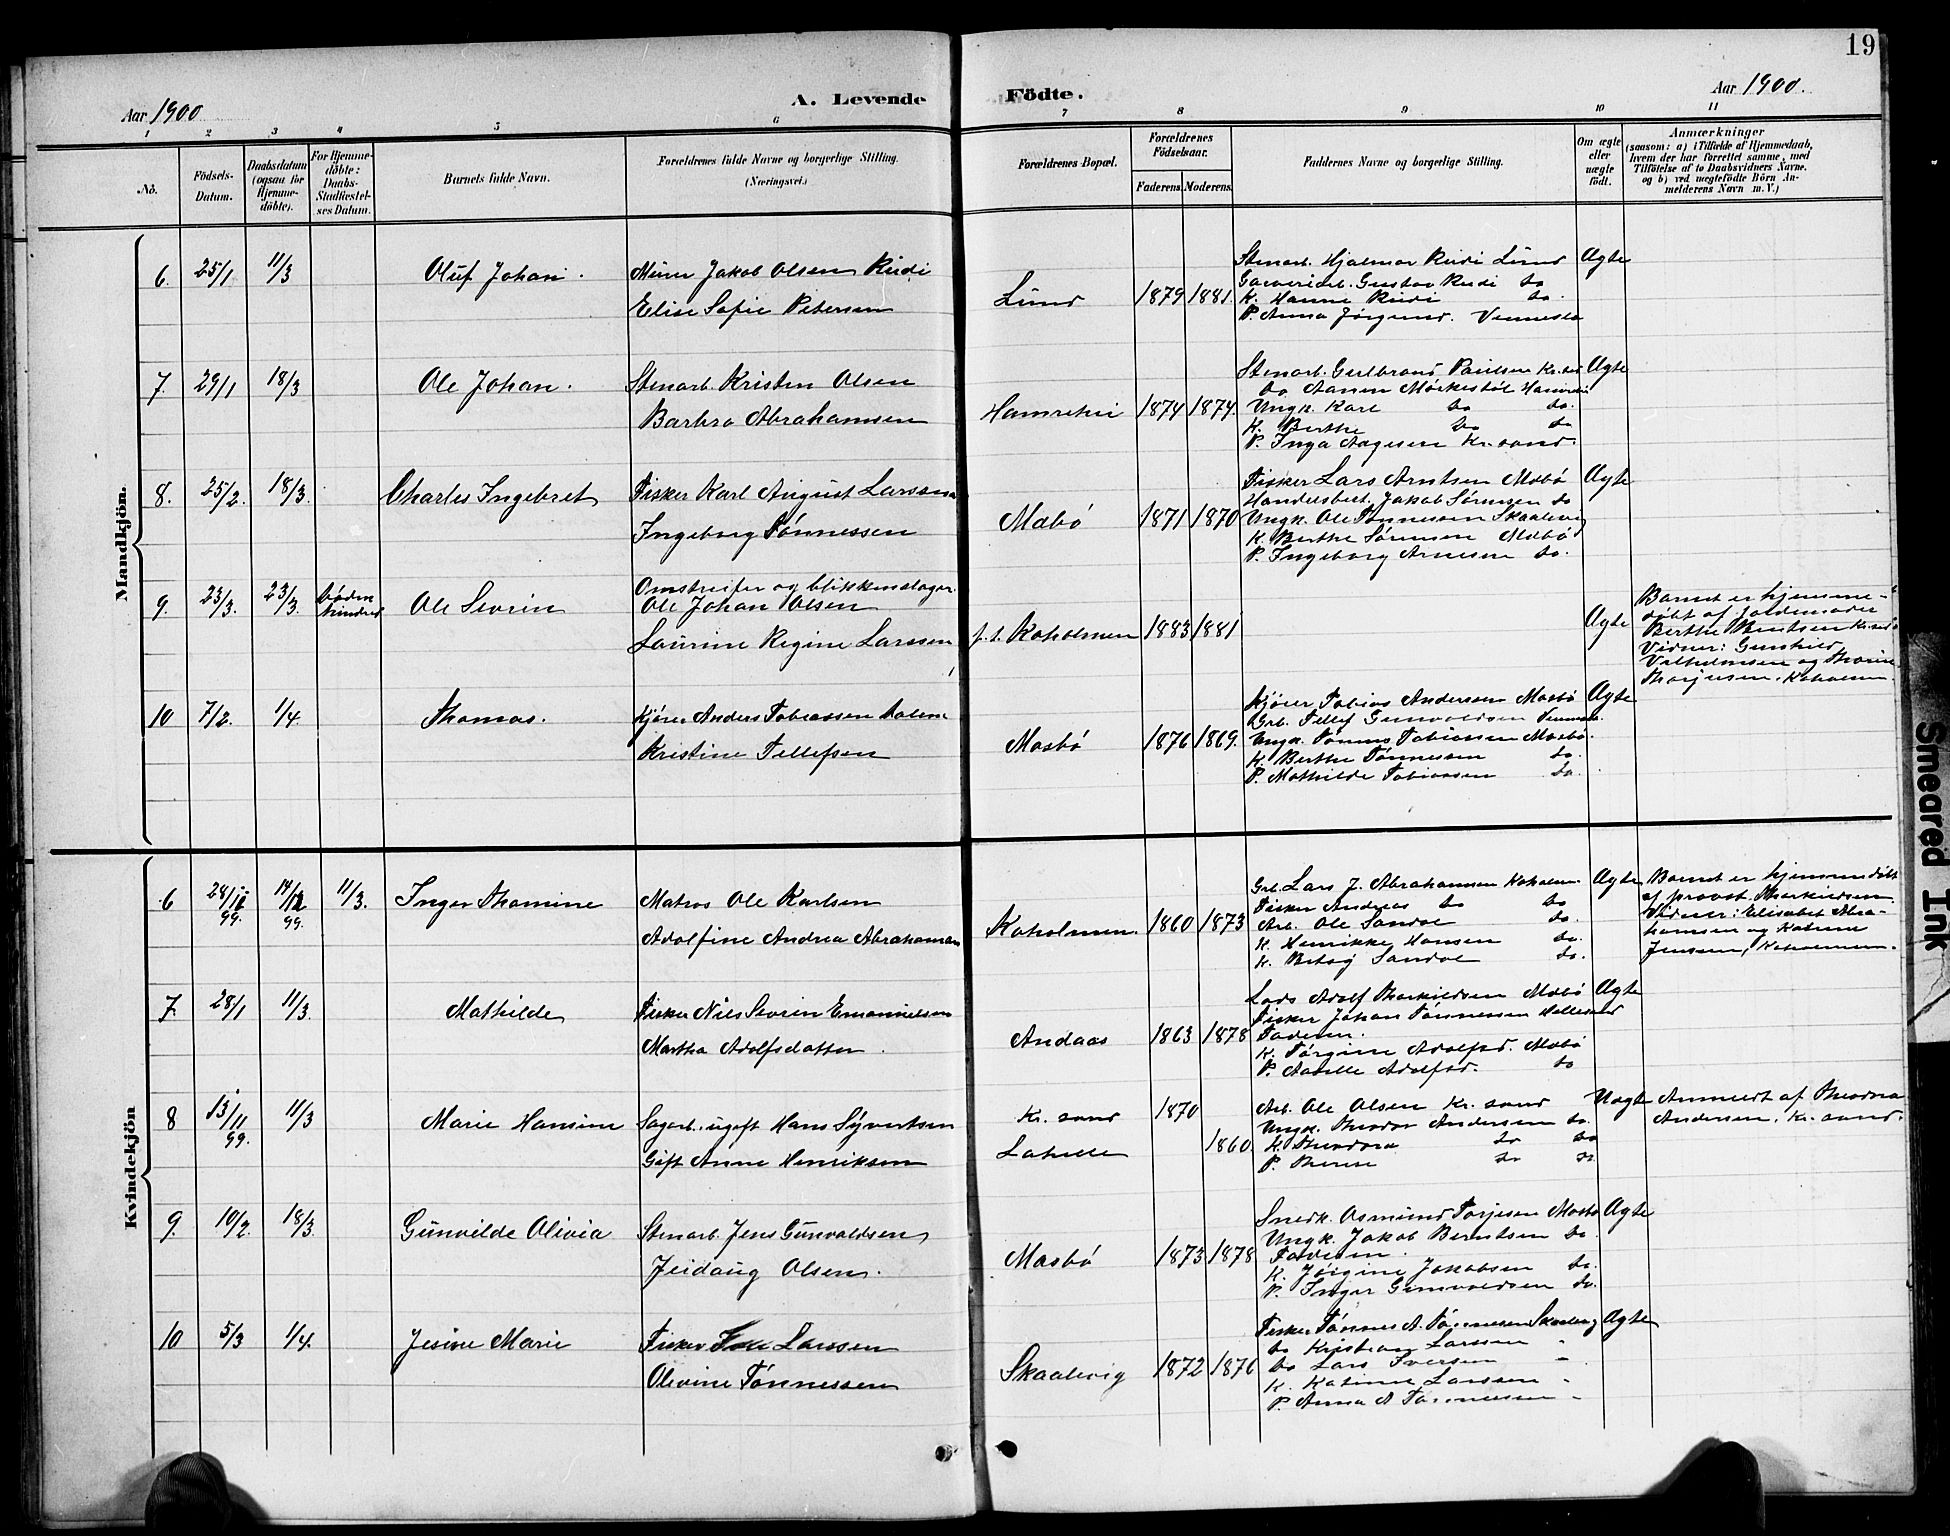 19
Aar 1900
A. Levende
Födte.
Aar 1900.
1 2 3 4 5 6 7 8 9 10 11
No.
Födsels-
Datum.
Daabsdatum
(ogsaa for
Hjemme-
döbte).
For Hjemme-
döbte:
Daabs-
Stadfæstel-
ses Datum.
Barnets fulde Navn.
Forældrenes fulde Navne og borgerlige Stilling.
(Næringsvei.)
Forældrenes Bopæl.
Forældrenes
Födselsaar.
Faderens. Moderens.
Faddernes Navne og borgerlige Stilling.
Om ægte
eller
uægte
födt.
Anmærkninger
(saasom: a) i Tilfælde af Hjemmedaab,
hvem der har forrettet samme, med
Tilföielse af to Daabsvidners Navne.
og b) ved uægtefödte Börn An-
melderens Navn m. V.)
Mandkjön.
6. 25/1 11/3 Oluf Johan.
Murer Jakob Olsen Rudi
Elise Sofie Petersen
Lund 1879 1881.
Stenarb. Hjalmar Rudi Lund
Gustav Rudi do
K. Hanne Rudi do.
P. Anna Jørgensd. Vennesla
Ægte
7. 29/1 18/3 Ole Johan.
Stenarb. Kristen Olsen
Barbro Abrahamsen
1874 1874.
Stenarb. Gulbrand Paulsen
do Aanen
Ungk. Karl do do.
K. Berthe do do
P. Inga Aagesen Kr.sand.
Ægte
8. 25/2. 18/3. Charles Ingebret
Fisker Karl August Larssen
Ingeborg Tönnessen
Mæbö 1871 1870
Fisker Lars Arntsen Mæbö
Handelsbest. Jakob Sørensen do
Ungk. Ole Tönnessen Skaalevig
K. Berthe Sørensen Mæbö
P. Ingeborg Arnesen do.
Ægte
9. 23/3. 23/3. Döden
hindred
Ole Severin
Omstreifer og blikkenslager
Ole Johan Olsen
Laurine Regine Larssen
p. t. Kaholmen 1883 1881
Ægte
Barnet er hjemme-
döbt af Jordemoder
Berthe Berntsen Kr.sand
Vidner: Gunhild
Vilhelmsen og
Kaholmen.
10 7/2. 1/4. Thomas.
Kjörer Anders Tobiassen
Kristine Tellefsen
Mosbö 1876 1869.
Kjörer Tobias Andersen Mosbö
Grb. Tellef Gunvaldsen
Ungk. Tönnes Tobiassen Mosbö.
K. Berthe Tönnessen do.
P. Mathilde Tobiassen do.
Ægte
Kvindekjön
6 99. 99. 11/3. Inger Thomine
Matros Ole Karlsen
Adolfine Andrea Abrahamsen
Kaholmen. 1860 1873
Grb. Lars J. Abrahamsen Kaholm.
Fisker Andreas do do
Arb. Ole Sandve do.
K. Henrikke Hansen do.
K. Betsy Sandve do.
Ægte
Barnet er hjemmedöbt
af provst Thorkildsen
Vidner: Elisabet Abra-
hamsen og Katrine
Jenssen, Kaholmen.
7. 28/1 11/3. Mathilde
Fisker Nils Severin Emanuelsen
Martha Adolfsdatter.
Andaas 1863 1878
Lods Adolf Thorkildsen Mæbö
Fisker Johan Tönnessen
Faderen.
K. Jørgine Adolfsd. Mæbö
P. Adolfsd. do
Ægte
8 13/11 99. 11/3 Marie Hansine
Sagarb. ugift Hans Syvertsen
Gift Anne Henriksen
Kr. sand 1870
1860.
Arb. Ole Olsen Kr. sand
Ungk. Theodor Andersen do.
K. Theodora do do
P. do do.
Uægte
Anmeldt af Theodora
Andersen, Kr. sand.
9. 10/2. 18/3. Gunvilde Olivia
Stenarb. Jens Gunvaldsen
Olsen.
Mosbö 1873 1878
Snedk. Osmund Torjesen Mosbö
Ungk. Jakob Berntsen do.
Faderen.
K. Jørgine Jakobsen do.
P. Inger Gunvaldsen do.
Ægte
10 5/3 1/4. Jesine Marie
Fisker Larssen
Olivine Tönnessen
Skaalevig 1872 1876
Fisker Tönnes A. Tönnessen Skaalevig
do Kristian Larssen "
do Lars Iversen "
K. Katinne Larssen "
P. Anna A Tönnessen "
Ægte
Smeared Ink